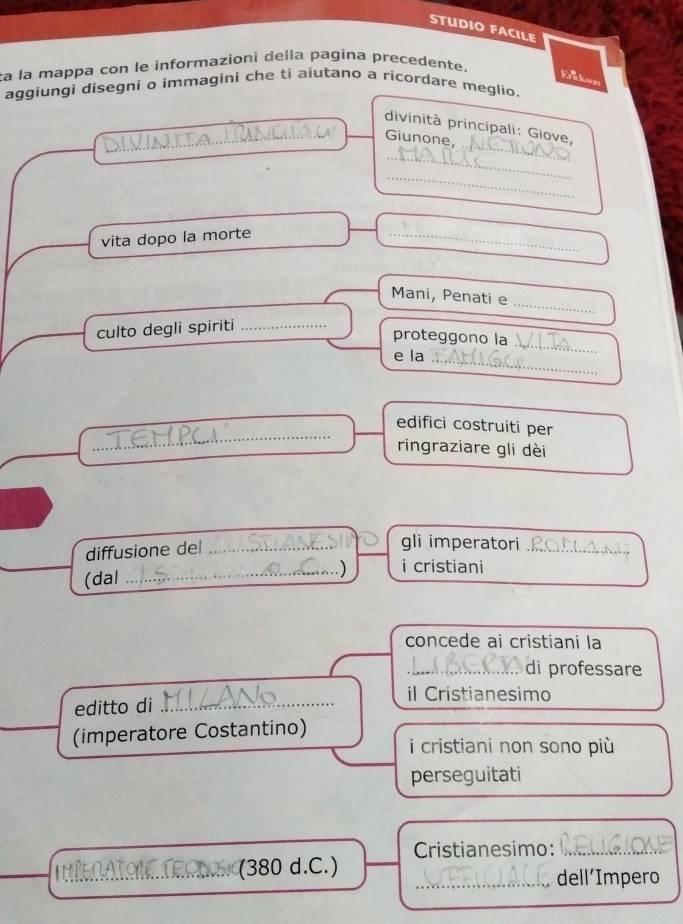 STUDIO FACILE
Erickson
ta la mappa con le informazioni della pagina precedente.
aggiungi disegni o immagini che ti aiutano a ricordare meglio.
DIVINITA PRINCIPALI
divinità principali: Giove,
Giunone, NETTUNO
MARTE
vita dopo la morte
culto degli spiriti
Mani, Penati e
proteggono la VITA
e la
TEMPLI
edifici costruiti per
ringraziare gli dèi
diffusione del
(dal )
gli imperatori ROMANI
i cristiani
editto di MILANO
(imperatore Costantino)
concede ai cristiani la
LIBERTA di professare
il Cristianesimo
i cristiani non sono più
perseguitati
IMPERATORE TEODOSIO (380 d.C.)
Cristianesimo: RELIGIONE
UFFICIALE dell'Impero